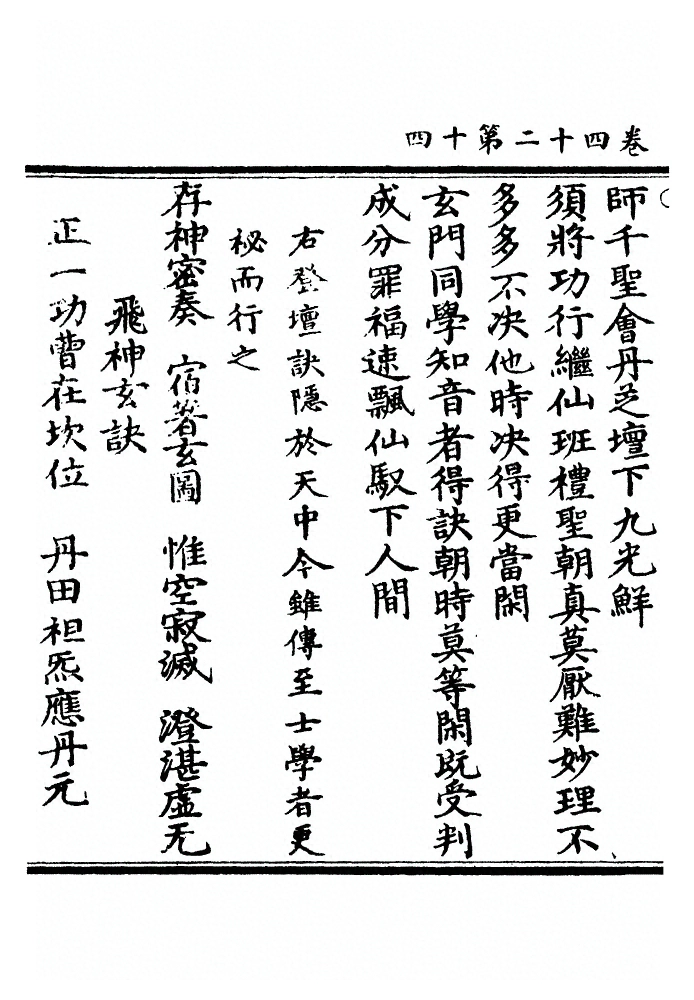 卷四十二第十四
師千聖會丹芝壇下九光鮮
須將功行繼仙班禮聖朝真莫厭難妙理不
多多不决他時决得更當閑
玄門同學知音者得訣朝時莫等閑既受判
成分罪福速飄仙馭下人間
右登壇訣隱於天中今雖傳至士學者更
秘而行之
存神密奏 宿著玄圖 惟空寂滅 澄湛虚无
飛神玄訣
正一功曹在坎位 丹田袒炁應丹元